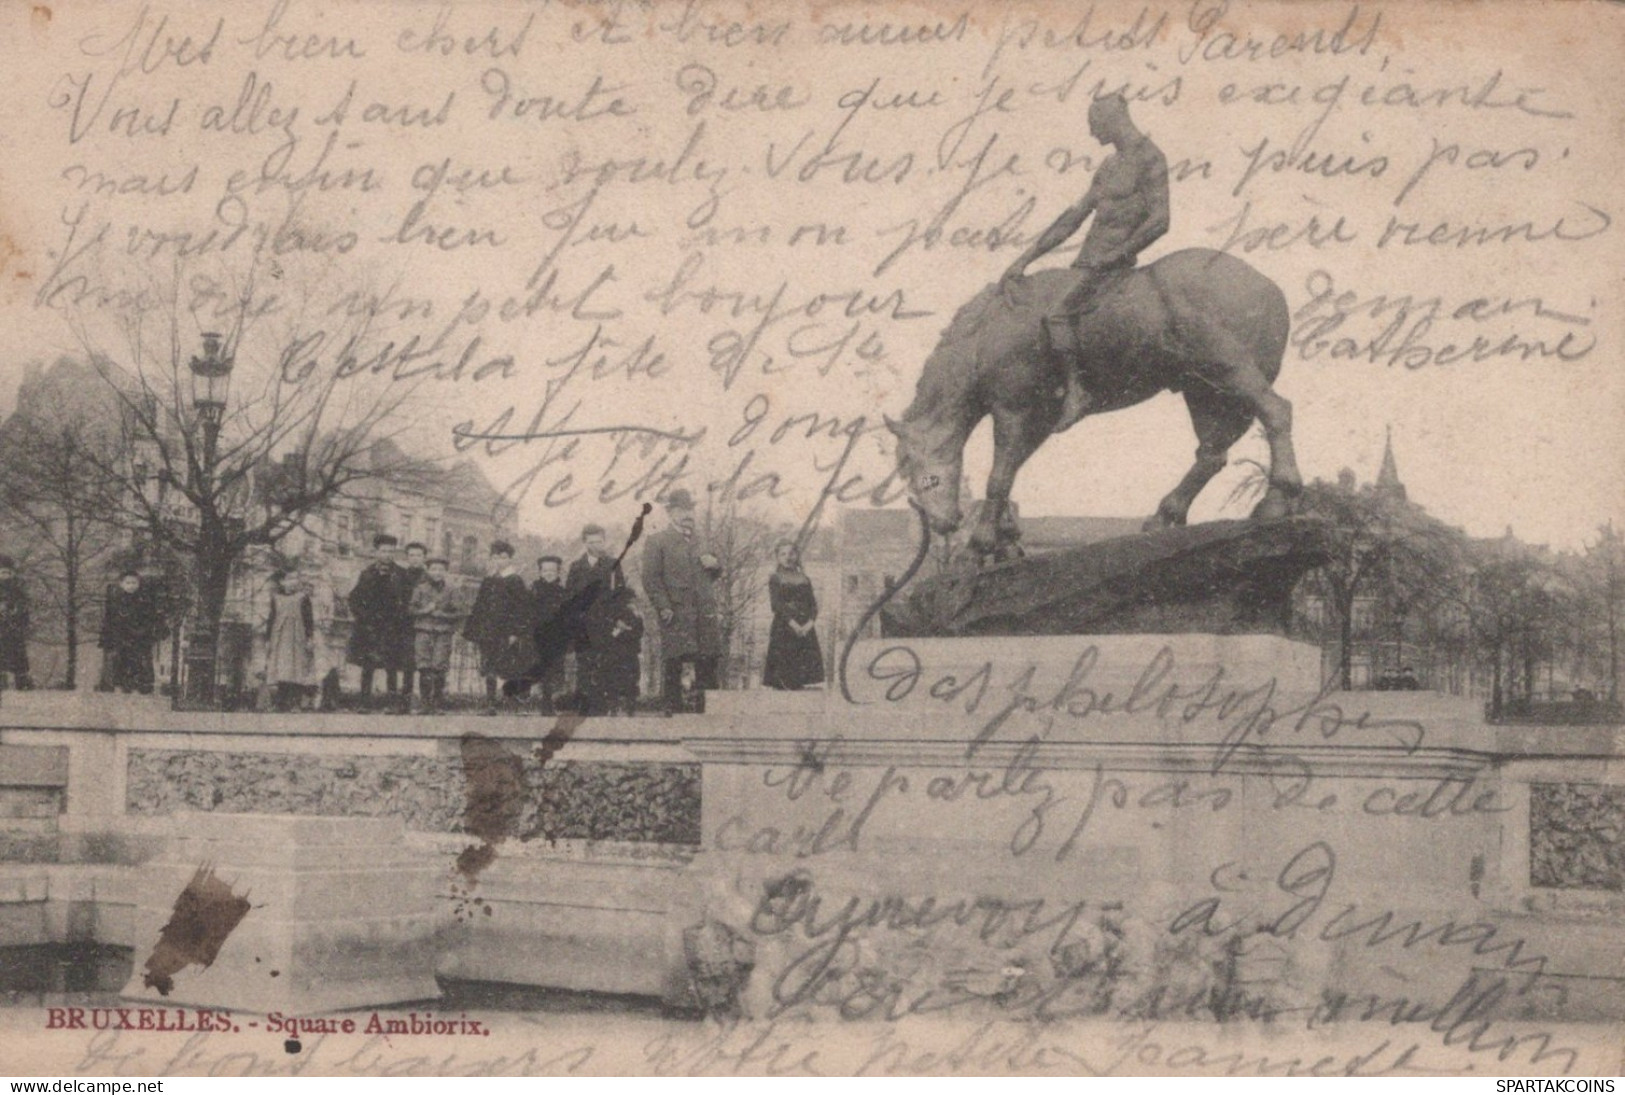 Mes bien chers et bien aimés petits Parents,
Vous allez sans doute dire que je suis exigeante
mais enfin que voulez-vous je n'en puis pas.
Je voudrais bien que mon petit père vienne
me dire un petit bonjour demain.
C'est la fête de Ste Catherine
donc
c'est la fête
des philosophes
Ne parlez pas de cette
carte
Au revoir à Demain
million
de bons baisers votre petite Jeannette.
BRUXELLES. - Square Ambiorix.
delcampe.net
SPARTAKCOINS